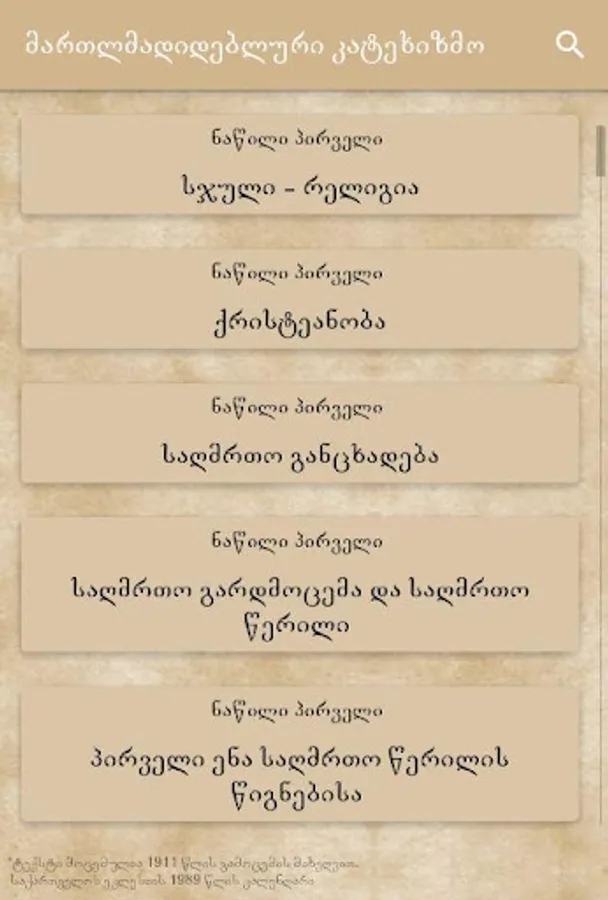 მართლმადიდებლური კატეხიზმო
ნაწილი პირველი
სჯული - რელიგია
ნაწილი პირველი
ქრისტეანობა
ნაწილი პირველი
საღმრთო განცხადება
ნაწილი პირველი
საღმრთო გარდმოცემა და საღმრთო
წერილი
ნაწილი პირველი
პირველი ენა საღმრთო წერილის
წიგნებისა
*ტექსტი მოცემულია 1911 წლის გამოცემის მიხედვით.
საქართველოს ეკლესიის 1989 წლის კალენდარი